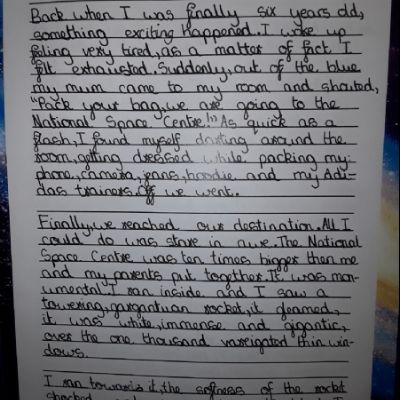 Back when I was finally six years old,
something exciting happened. I woke up
feling very tired, as a matter of fact I
felt exhausted. Suddenly, out of the blue
my mum came to my room and shouted,
"Pack your bag, we are going to the
National Space Centre!" As quick as a
flash, I found myself darting around the
room, getting dressed while packing my:
phone, camera, jeans, hoodie and my Adi-
das trainers. Off we went.
Finally, we reached our destination. All I
could do was stare in awe. The National
Space Centre was ten times bigger than me
and my parents put together. It was mon-
umental. I ran inside and I saw a
towering, gargantuan rocket, it gleamed,
it was white, immense and gigantic,
over the one thousand variegated thin win-
dows.
I ran towards it, the softness of the rocket
shocked